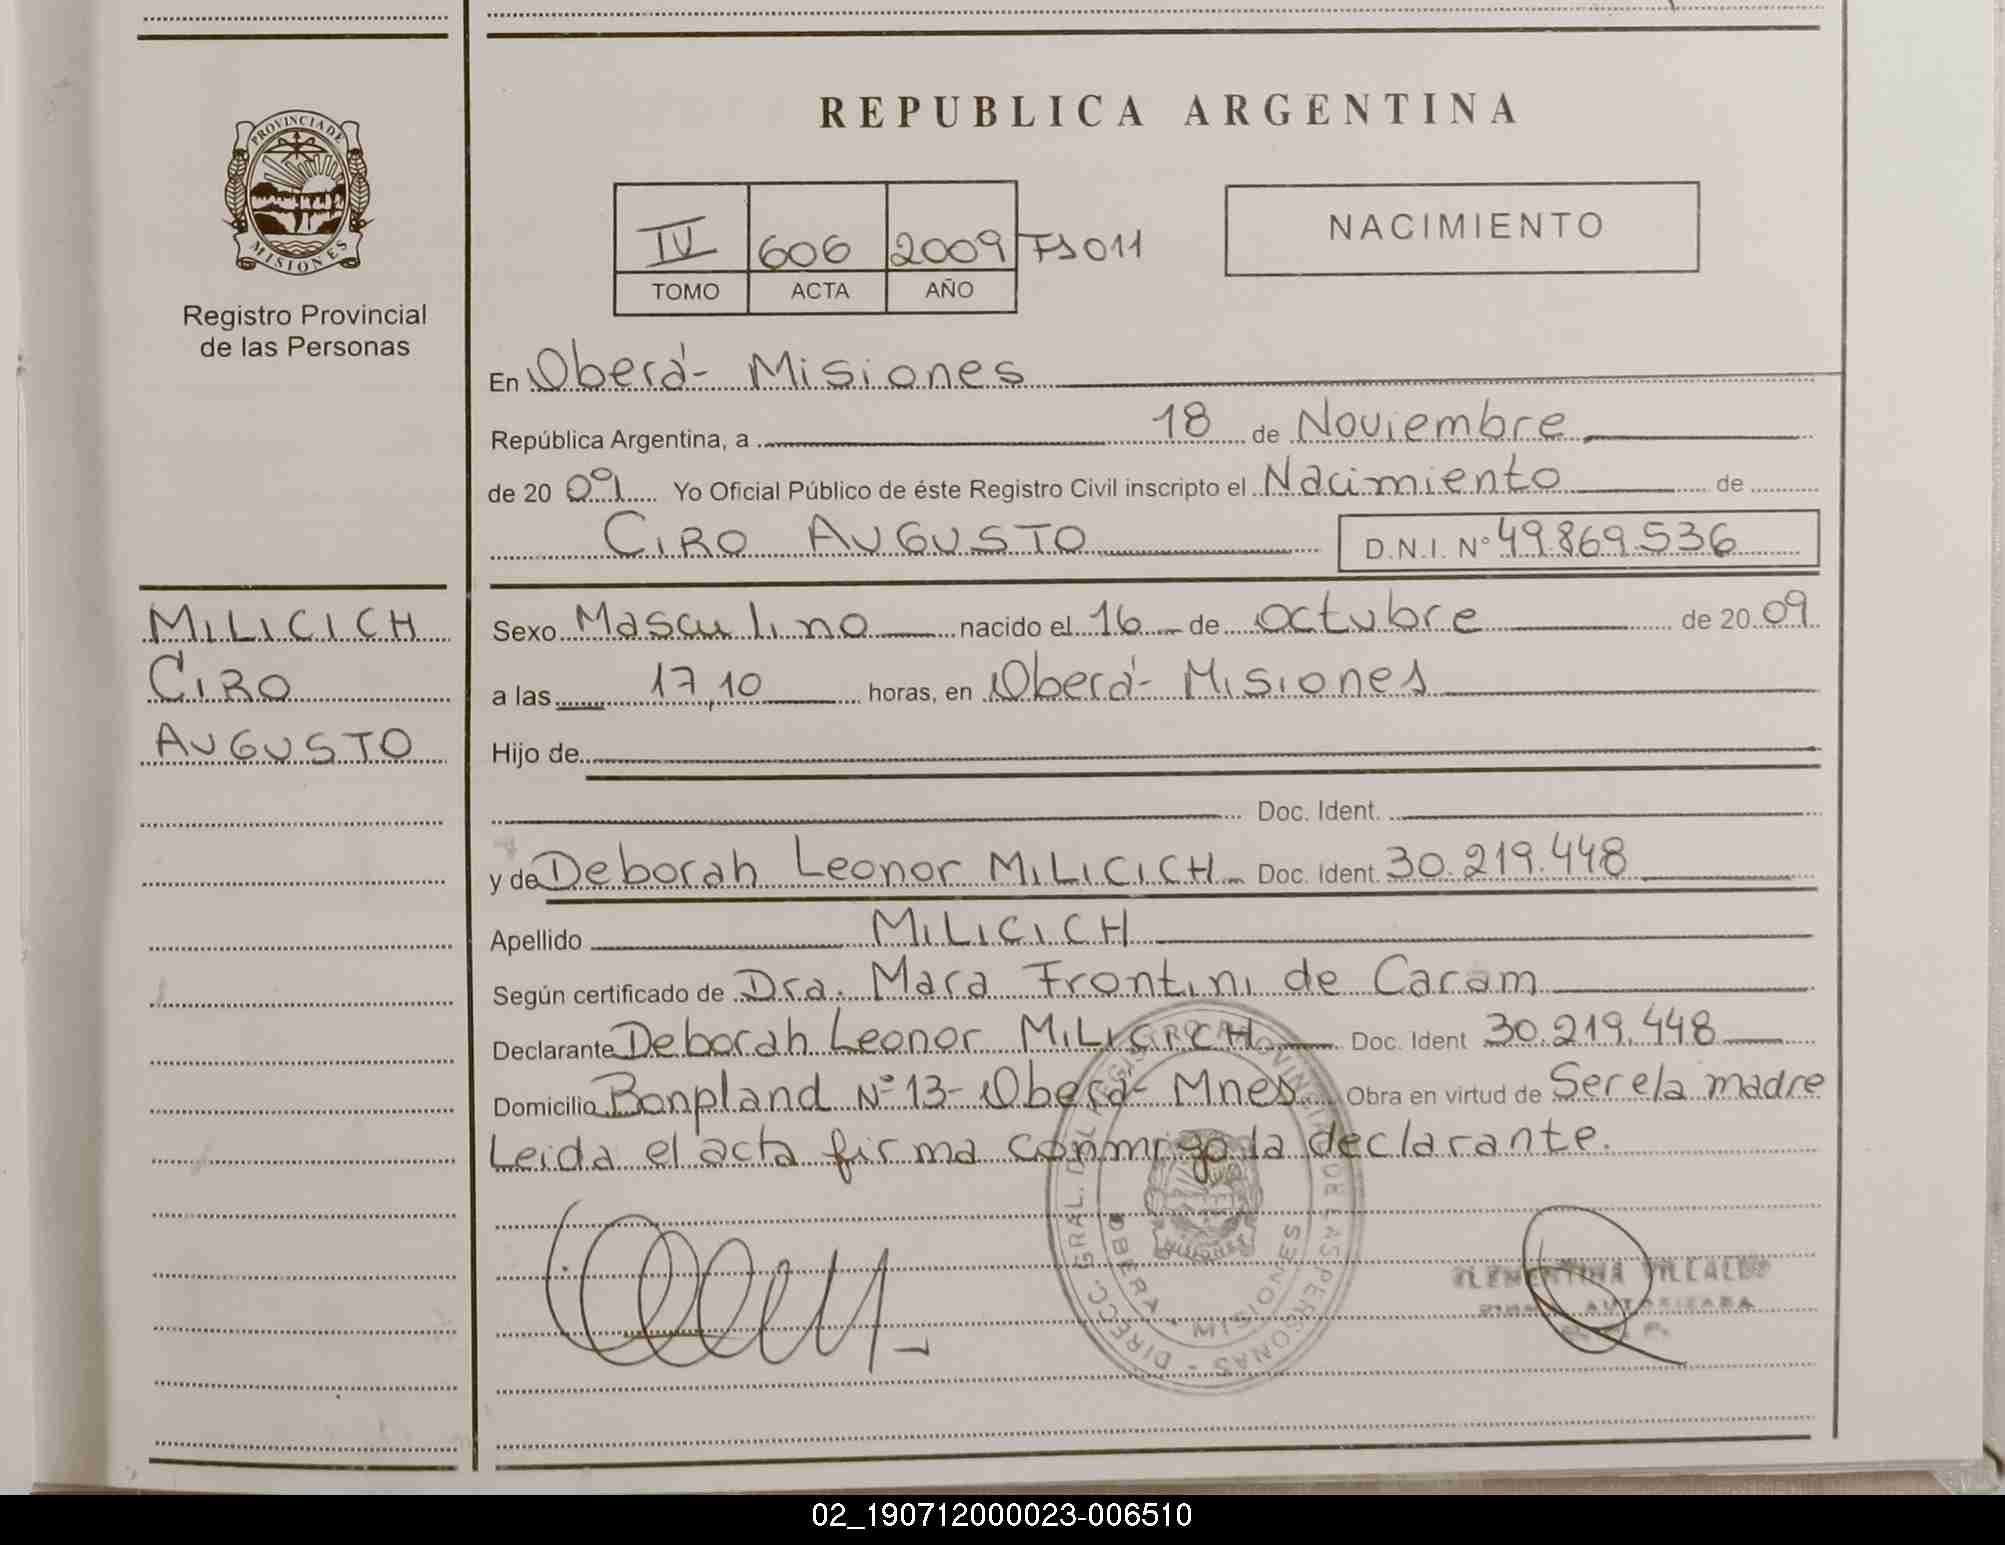 REPUBLICA ARGENTINA
PROVINCIA DE
MISIONES
Registro Provincial
de las Personas
IV 606 2009 Fs 011
TOMO ACTA AÑO
NACIMIENTO
En Oberá - Misiones
República Argentina, a 18 de Noviembre
de 20 09 Yo Oficial Público de éste Registro Civil inscripto el Nacimiento de
CIRO AUGUSTO D.N.I. N° 49.869.536
MILICICH
CIRO
AUGUSTO
Sexo Masculino nacido el 16 de octubre de 20 09
a las 17,10 horas, en Oberá - Misiones
Hijo de
Doc. Ident.
y de Deborah Leonor MILICICH Doc. Ident. 30.219.448
Apellido MILICICH
Según certificado de Dra. Mara Frontini de Caram
Declarante Deborah Leonor MILICICH Doc. Ident 30.219.448
Domicilio Bonpland N° 13 - Oberá - Mnes Obra en virtud de Ser ela madre
Leida el acta firma conmigo la declarante.
DIRECC. GRAL. DEL REGISTRO PROVINCIAL DE LAS PERSONAS -
OBERA - MISIONES
MISIONES
CLEMENTINA VILLALBA
AUTORIZADA
02_190712000023-006510